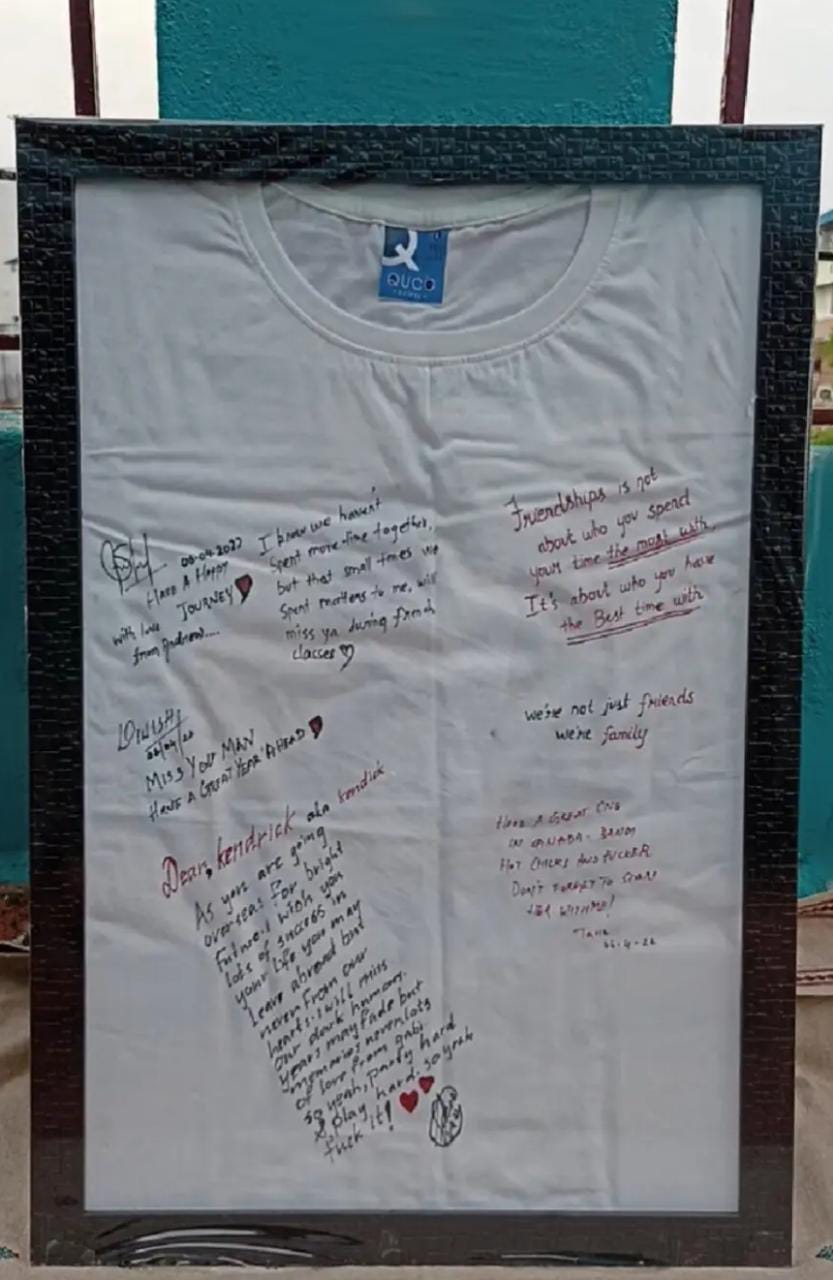 QUCO
05-04-2022
HAVE A HAPPY
JOURNEY
with love
from Andrew....
I know we haven't
spent more time together,
but that small times we
spent matters to me, will
miss ya during french
classes
Friendships is not
about who you spend
your time the most with.
It's about who you have
the Best time with
we're not just friends
we're family
MISS YOU MAN
HAVE A GREAT YEAR AHEAD
Dear, kendrick aka kendick
As you are going
overseas for bright
future i wish you
lots of success in
your life you may
leave abroad but
never from our
hearts. i will miss
our dark humour.
years may fade but
memories never. lots
of love from gabi
so yeah, party hard
& play hard. so yeah
fuck it!
HAVE A GREAT
IN CANADA
HOT CHICKS AND FUCKER
DON'T FORGET TO
WITH ME!